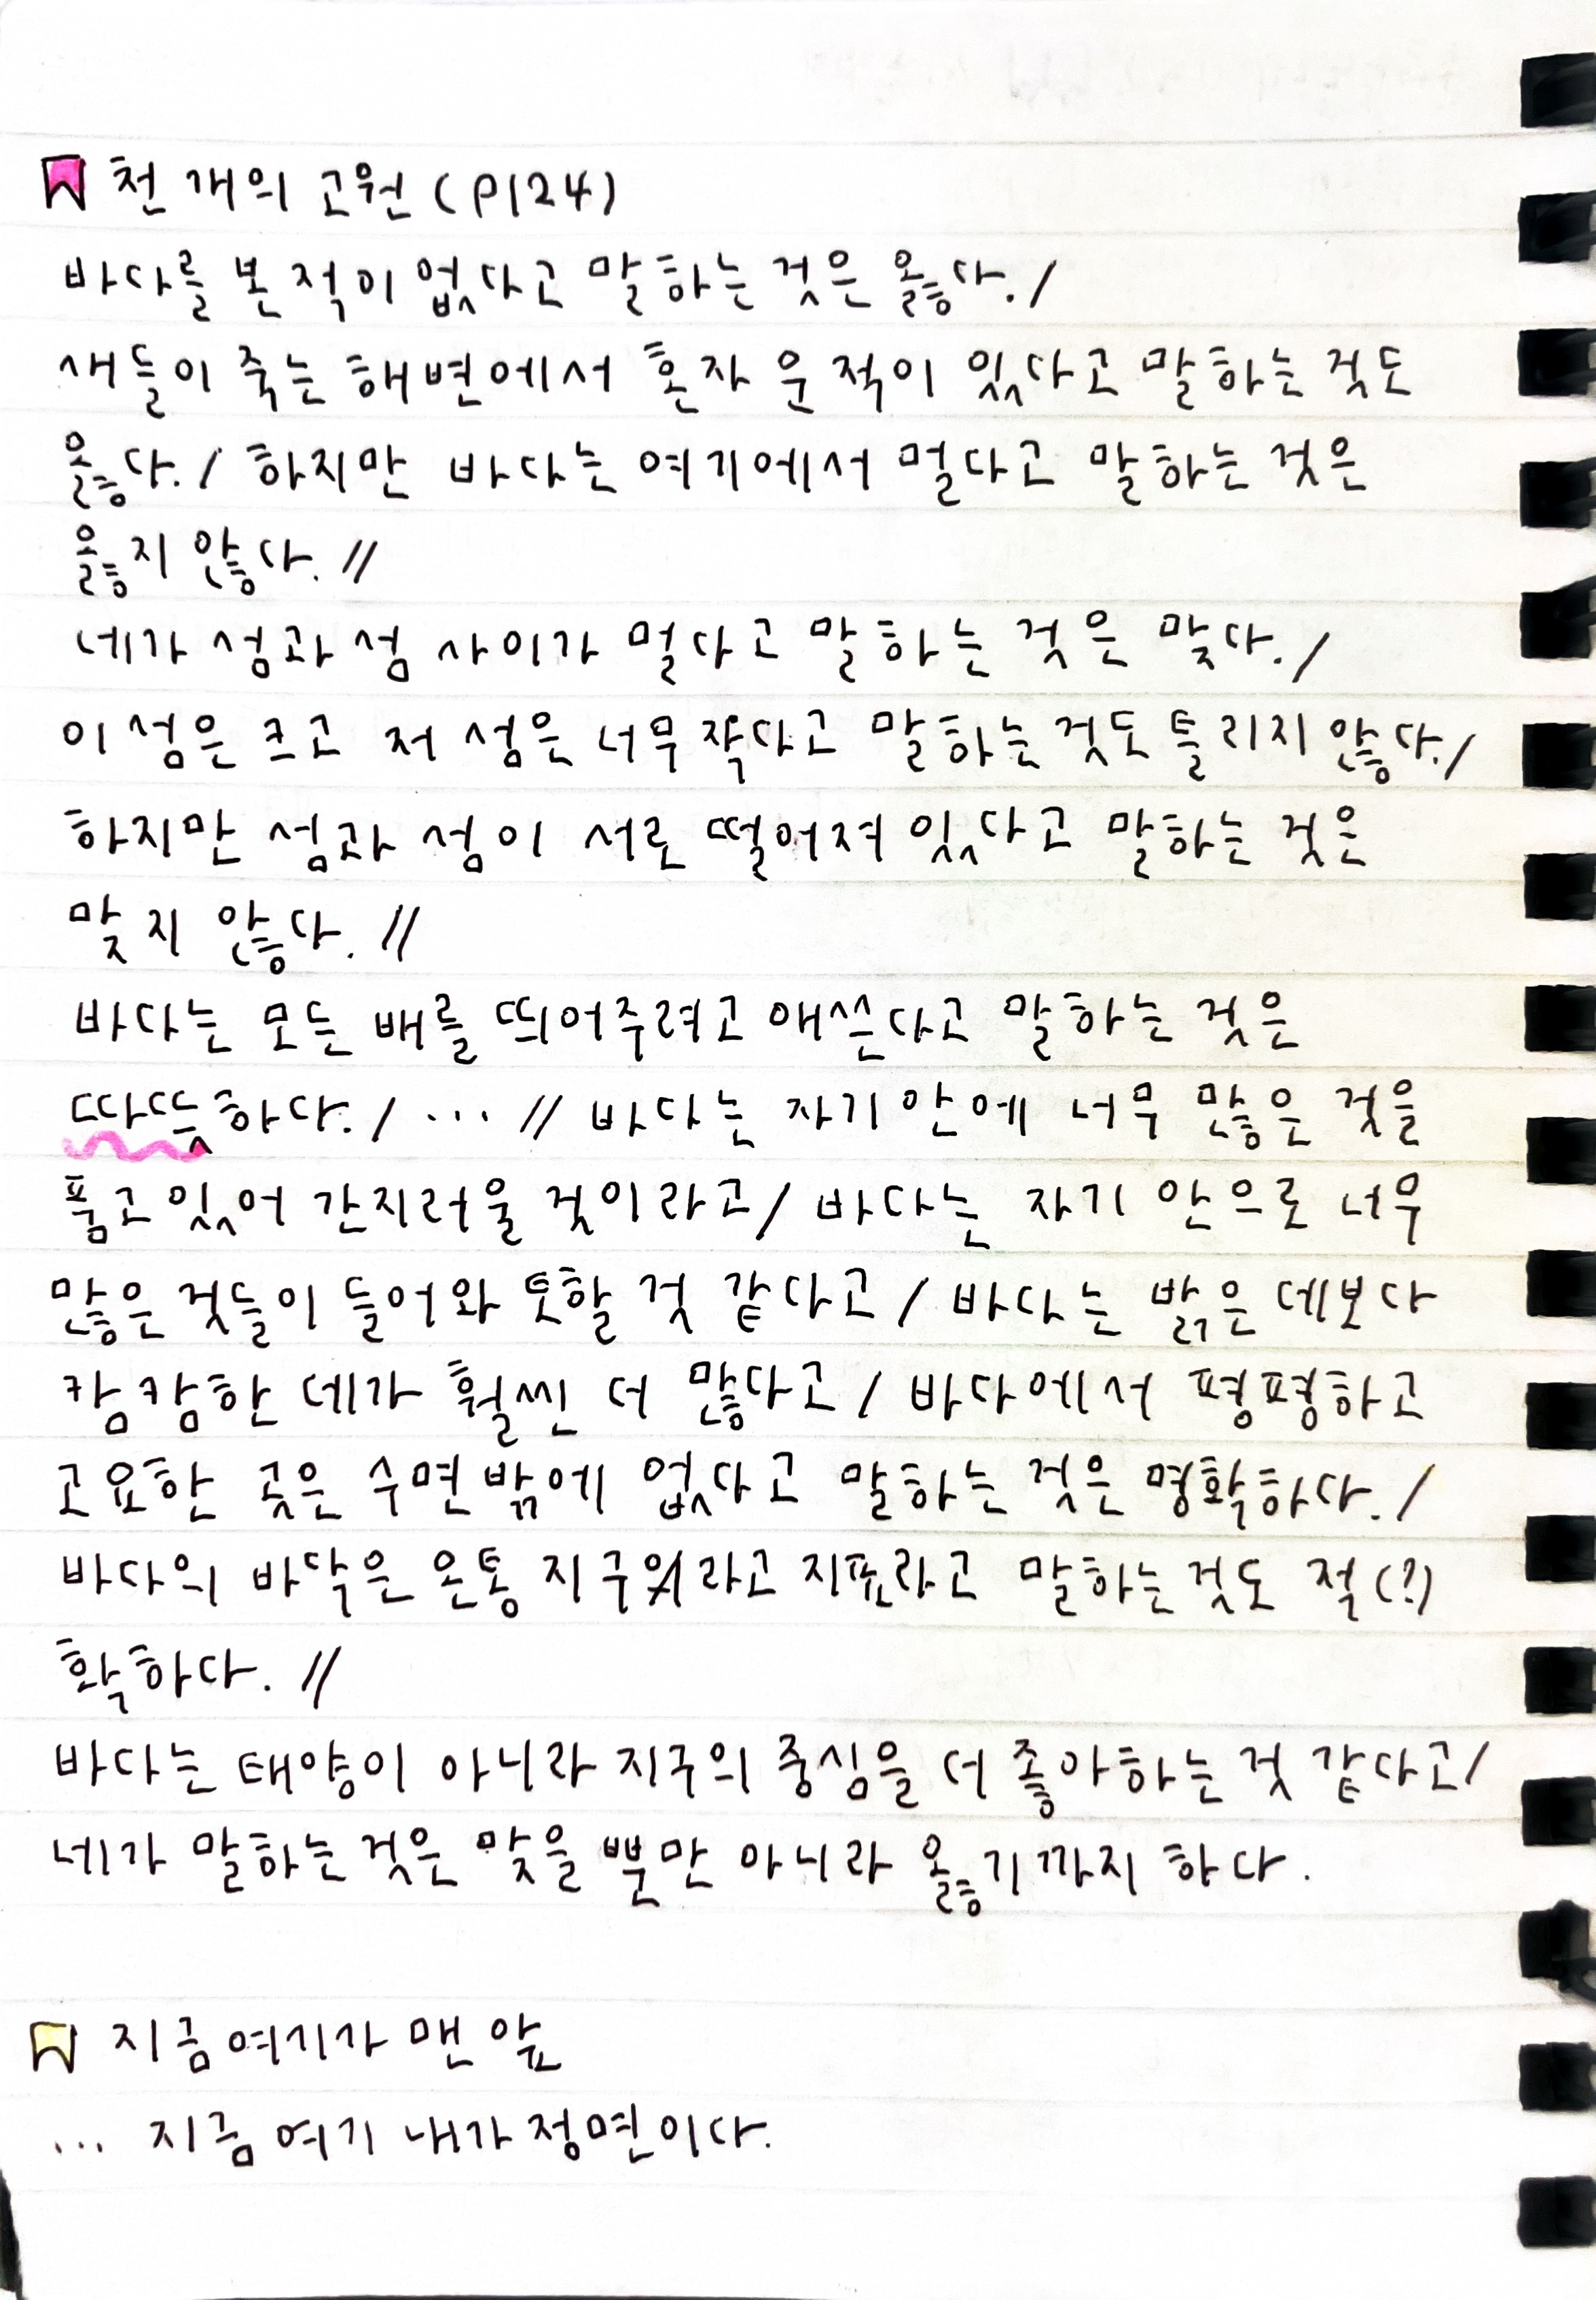 천 개의 고원 (P124)
바다를 본 적이 없다고 말하는 것은 옳다. /
새들이 죽는 해변에서 혼자 운 적이 있다고 말하는 것도
옳다. / 하지만 바다는 여기에서 멀다고 말하는 것은
옳지 않다. //
네가 섬과 섬 사이가 멀다고 말하는 것은 맞다. /
이 섬은 크고 저 섬은 너무 작다고 말하는 것도 틀리지 않다. /
하지만 섬과 섬이 서로 떨어져 있다고 말하는 것은
맞지 않다. //
바다는 모든 배를 띄어주려고 애쓴다고 말하는 것은
따뜻하다. / ... // 바다는 자기 안에 너무 많은 것을
품고 있어 간지러울 것이라고 / 바다는 자기 안으로 너무
많은 것들이 들어와 토할 것 같다고 / 바다는 밝은 데보다
캄캄한 데가 훨씬 더 많다고 / 바다에서 평평하고
고요한 곳은 수면 밖에 없다고 말하는 것은 명확하다. /
바다의 바닥은 온통 지구라고 지표라고 말하는 것도 적(?)
확하다. //
바다는 태양이 아니라 지구의 중심을 더 좋아하는 것 같다고 /
네가 말하는 것은 맞을 뿐만 아니라 옳기까지 하다.
지금 여기가 맨 앞
... 지금 여기 내가 정면이다.